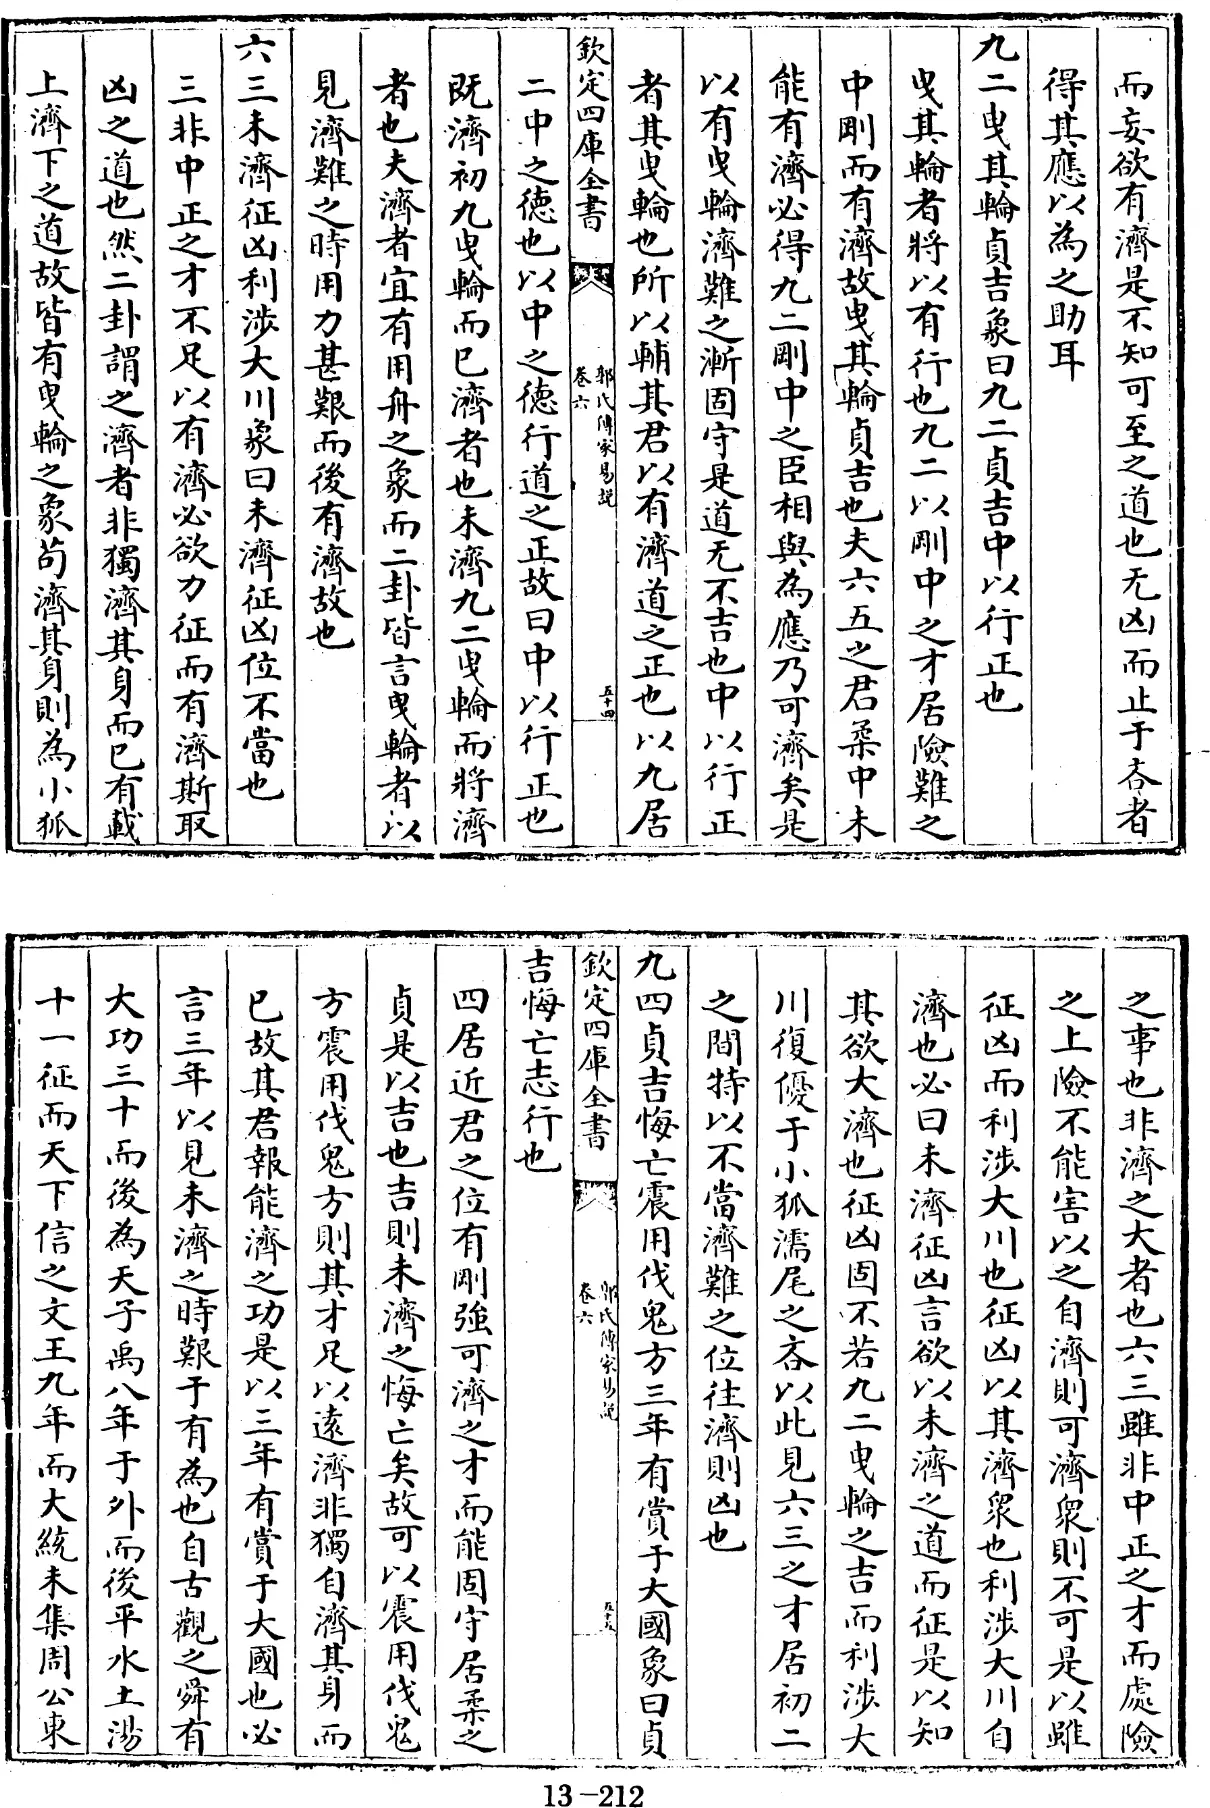 而妄欲有濟是不知可至之道也无凶而止于吝者
得其應以為之助耳
九二曳其輪貞吉象曰九二貞吉中以行正也
曳其輪者將以有行也九二以剛中之才居險難之
中剛而有濟故曳其輪貞吉也夫六五之君柔中未
能有濟必得九二剛中之臣相與為應乃可濟矣是
以有曳輪濟難之漸固守是道无不吉也中以行正
者其曳輪也所以輔其君以有濟道之正也以九居
欽定四庫全書
郭氏傳家易說
卷六
五十四
二中之德也以中之德行道之正故曰中以行正也
既濟初九曳輪而已濟者也未濟九二曳輪而將濟
者也夫濟者宜有用舟之象而二卦皆言曳輪者以
見濟難之時用力甚艱而後有濟故也
六三未濟征凶利涉大川象曰未濟征凶位不當也
三非中正之才不足以有濟必欲力征而有濟斯取
凶之道也然二卦謂之濟者非獨濟其身而已有載
上濟下之道故皆有曳輪之象苟濟其身則為小狐
之事也非濟之大者也六三雖非中正之才而處險
之上險不能害以之自濟則可濟衆則不可是以雖
征凶而利涉大川也征凶以其濟衆也利涉大川自
濟也必曰未濟征凶言欲以未濟之道而征是以知
其欲大濟也征凶固不若九二曳輪之吉而利涉大
川復優于小狐濡尾之吝以此見六三之才居初二
之間特以不當濟難之位往濟則凶也
九四貞吉悔亡震用伐鬼方三年有賞于大國象曰貞
欽定四庫全書
郭氏傳家易說
卷六
五十五
吉悔亡志行也
四居近君之位有剛強可濟之才而能固守居柔之
貞是以吉也吉則未濟之悔亡矣故可以震用伐鬼
方震用伐鬼方則其才足以遠濟非獨自濟其身而
已故其君報能濟之功是以三年有賞于大國也必
言三年以見未濟之時艱于有為也自古觀之舜有
大功二十而後為天子禹八年于外而後平水土湯
十一征而天下信之文王九年而大統未集周公東
13-212